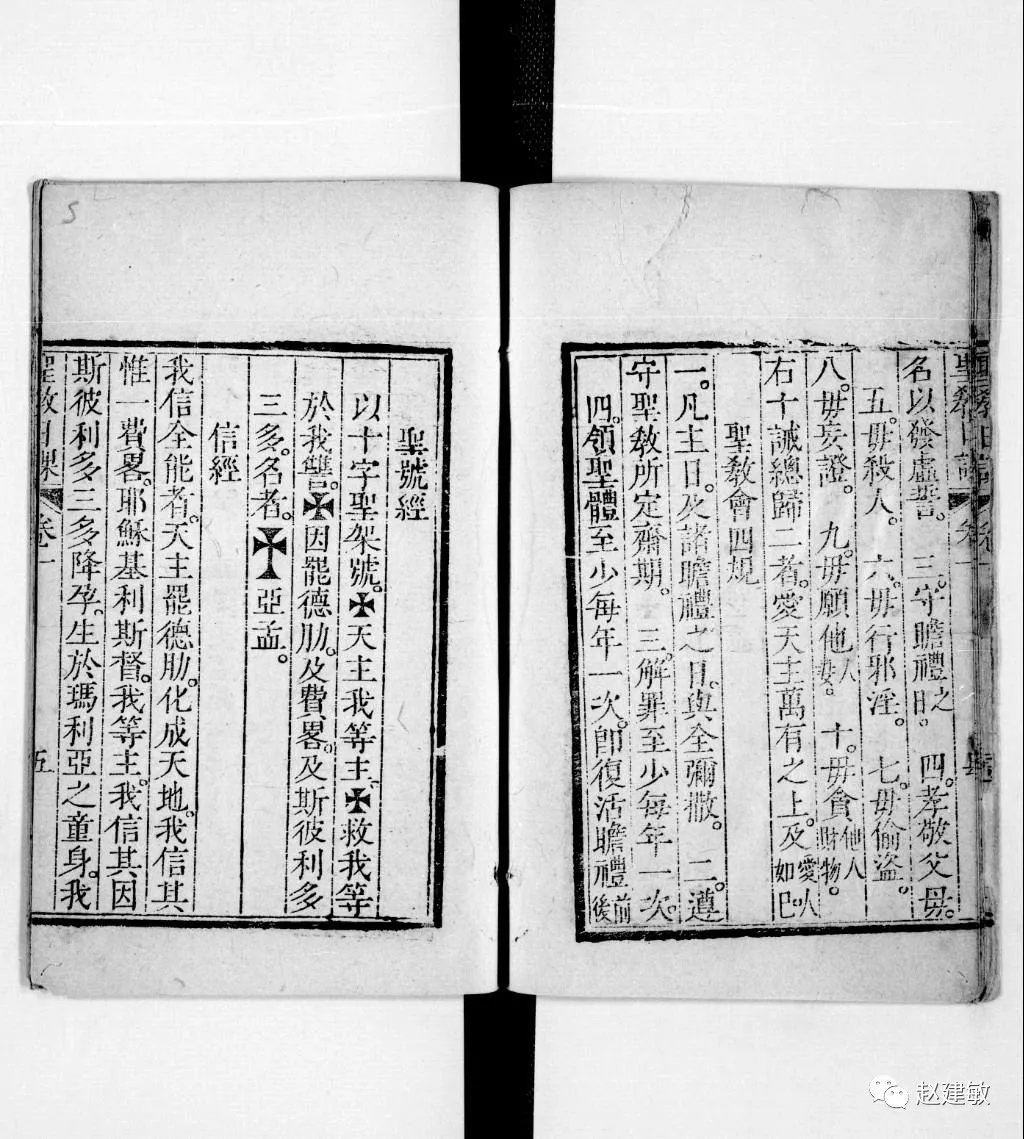 聖教日課 卷一
名以發虛誓。 三守瞻禮之日。 四。孝敬父母。
五。毋殺人。 六。毋行邪淫。 七。毋偷盜。
八。毋妄證。 九。毋願他人妻。 十。毋貪他人財物。
右十誡總歸二者。愛天主萬有之上。及愛人如己。
聖教會四規
一。凡主日。及諸瞻禮之日。與全彌撒。 二。遵
守聖教所定齋期。 三。解罪至少每年一次。
四。領聖體至少每年一次。即復活瞻禮前後
聖號經
以十字聖架號。✠天主我等主。✠救我等
於我讐。✠因罷德肋。及費畧。及斯彼利多
三多。名者。✠亞孟。
信經
我信全能者。天主罷德肋。化成天地。我信其
惟一費畧。耶穌基利斯督。我等主。我信其因
斯彼利多三多降孕。生於瑪利亞之童身。我
聖教日課 卷一 五
5
赵建敏